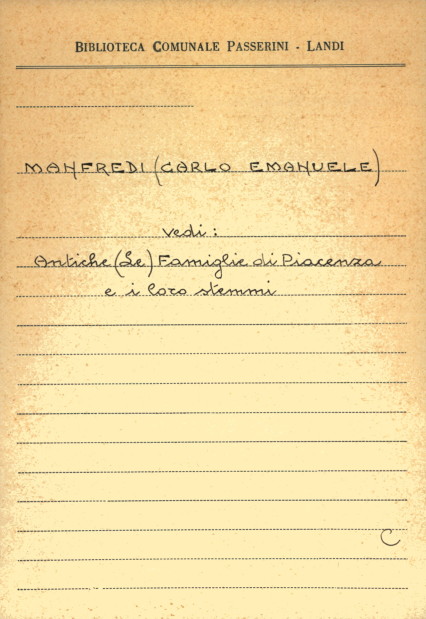 BIBLIOTECA COMUNALE PASSERINI - LANDI
MANFREDI (CARLO EMANUELE)
vedi:
Antiche (Le) Famiglie di Piacenza
e i loro stemmi
C